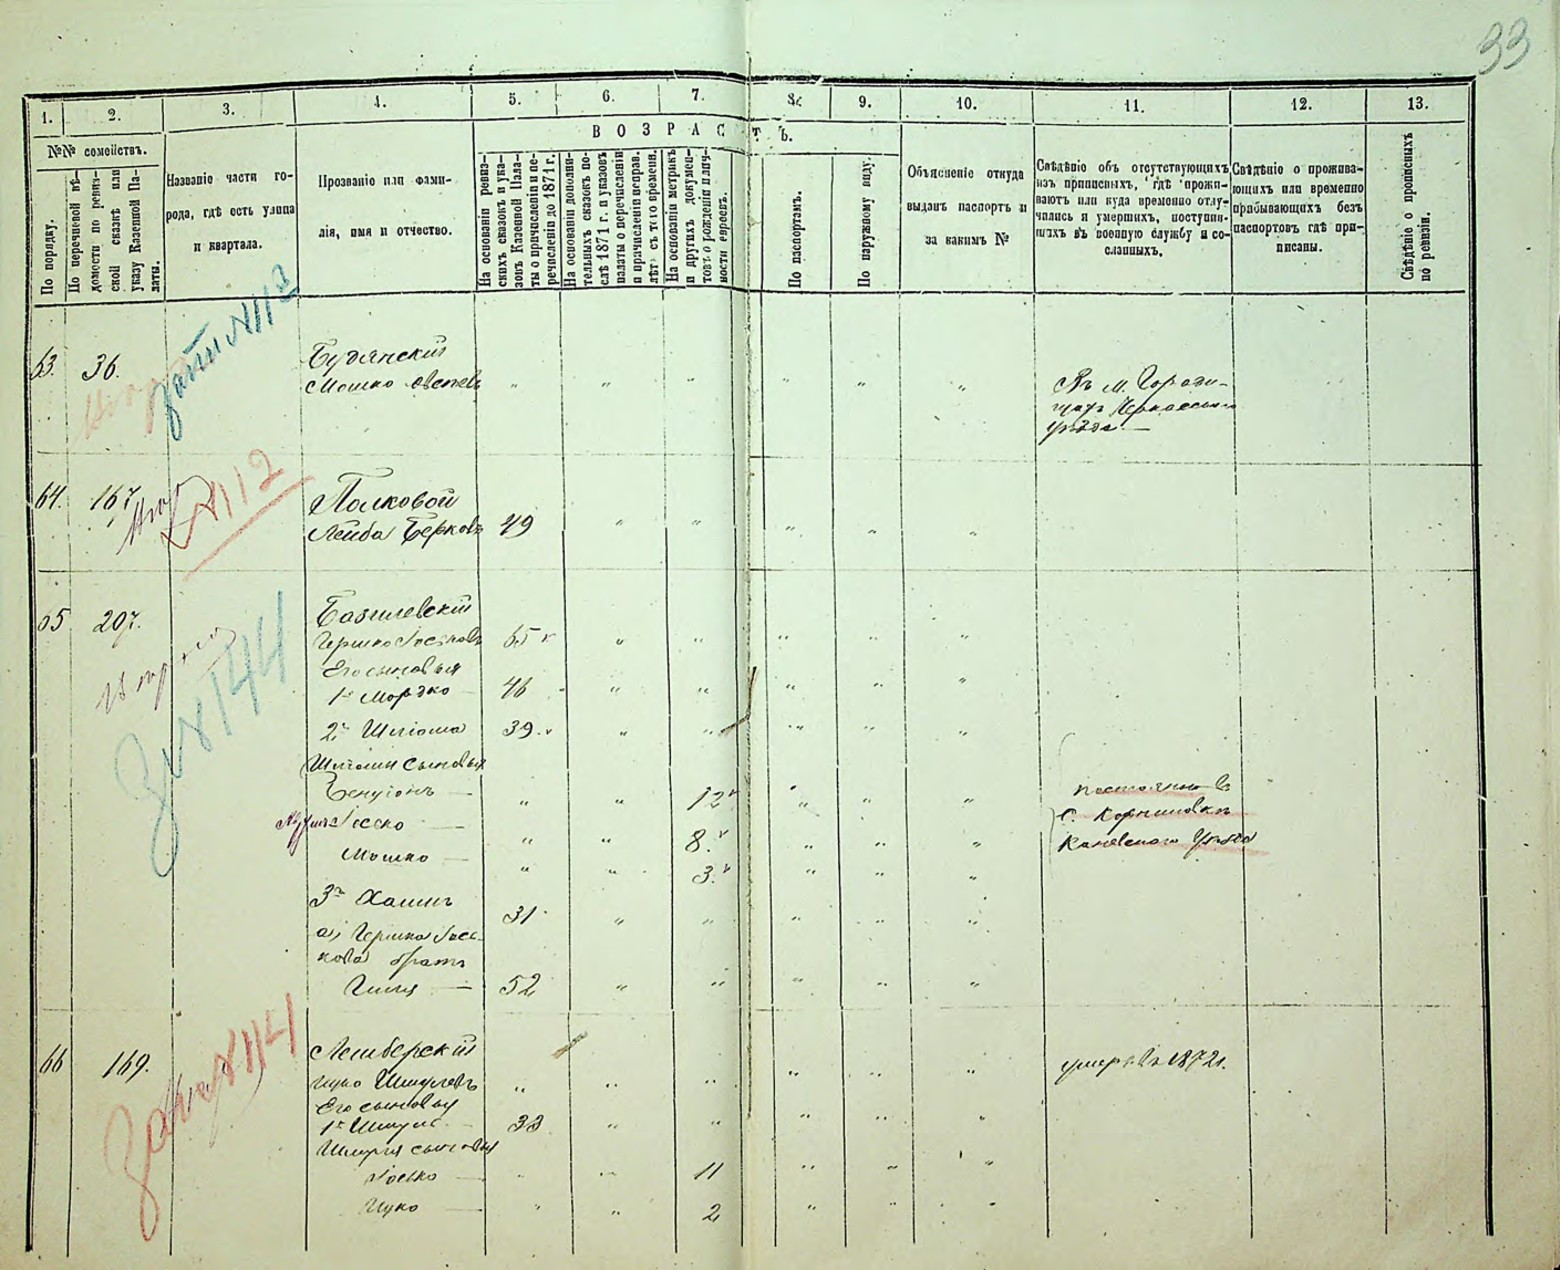 33
1. 2. 3. 4. 5. 6. 7. 8. 9. 10. 11. 12. 13.
№№ семействъ.
По порядку.
По перечневой вѣ-
домости по ревиз-
ской сказкѣ или
указу Казенной Па-
латы.
Названіе части го-
рода, гдѣ есть улица
и квартала.
Прозваніе или фами-
лія, имя и отчество.
ВОЗРАСТЪ.
На основаніи ревиз-
скихъ сказокъ и ука-
зовъ Казенной Пала-
ты о причисленіи и пе-
речисленіи до 1871 г.
На основаніи дополни-
тельныхъ сказокъ по-
слѣ 1871 г. и указовъ
палаты о перечисленіи
и причисленіи неправ.
лѣтъ съ того времени.
На основаніи метрикъ
и другихъ докумен-
товъ о рожденіи и лич-
ности евреевъ.
По паспортамъ.
По наружному виду.
Объясненіе откуда
выданъ паспортъ и
за какимъ №
Свѣдѣніе объ отсутствующихъ
изъ приписныхъ, гдѣ прожи-
ваютъ или куда временно отлу-
чились и умершихъ, поступив-
шихъ въ военную службу и со-
сланныхъ.
Свѣдѣніе о прожива-
ющихъ или временно
прибывающихъ безъ
паспортовъ гдѣ при-
писаны.
Свѣдѣніе о прописныхъ
по ревизіи.
63. 36.
№112
Будянскій
Мошко
Въ м. Городи-
щахъ Черкасскаго
уѣзда.
64. 167
№112
Полковой
Лейба Берковъ 49
65 207.
№144
Базилевскій
Гершко Іоськовъ 65
Его сыновья
1й Мордко 46
2й Шліома 39
Шліоми сыновья
Бенціонъ 12
Іосько 8.
Мошко 3.
постоянно въ
с. Корниловкѣ
Каневского Уѣзда
3й Хаимъ 31
а, Гершка Іось-
кова братъ
52
66 169.
№114
Лемберскій
Ицко Шмулевъ
умеръ въ 1872 г.
Его сыновья
1й Шмуль 33
Шмуля сыновья
Іосько 11
Ицко 2